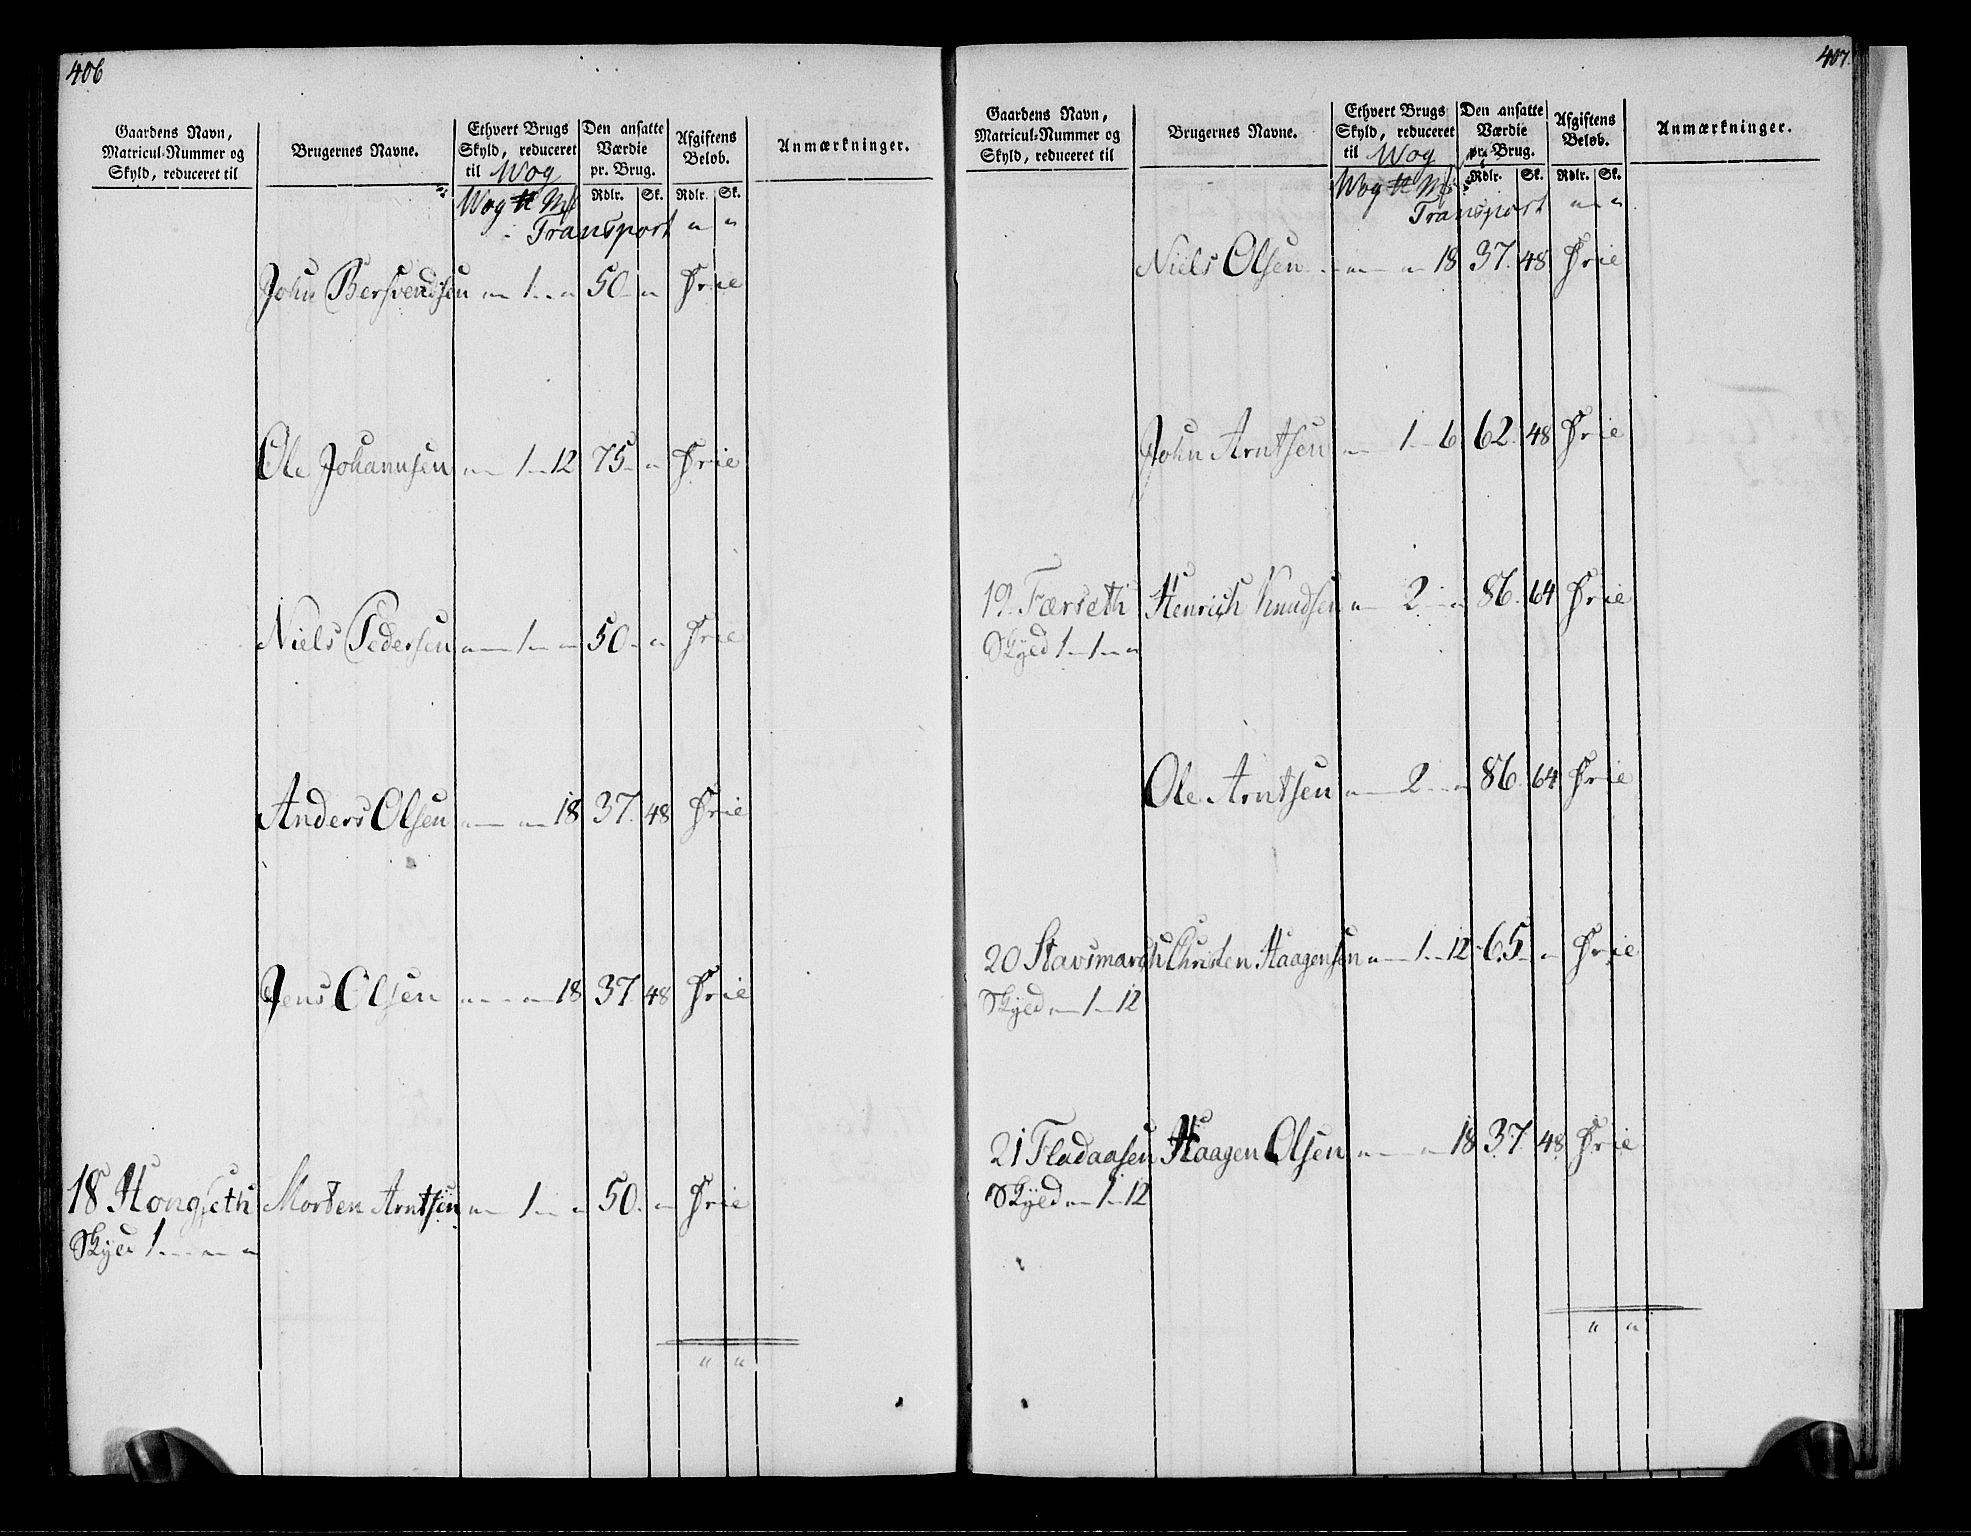 406
Gaardens Navn, Matricul-Nummer og Skyld, reduceret til
Brugernes Navne.
Ethvert Brugs Skyld, reduceret til Wog
Den ansatte Værdie pr. Brug.
Afgiftens Beløb.
Anmærkninger.
Wog ℔ Mk Rdlr. Sk. Rdlr. Sk.
Transport " "
John Bersvendsen " 1 " 50 " Frie
Ole Johannsen " 1 " 12 75 " Frie
Niels Pedersen " 1 " 50 " Frie
Anders Olsen " " 18 37. 48 Frie
Jens Olsen " " 18 37. 48 Frie
18 Hongseth Morten Arntsen " 1 " 50 " Frie
Skyld 1 " "
" "
407.
Gaardens Navn, Matricul-Nummer og Skyld, reduceret til
Brugernes Navne.
Ethvert Brugs Skyld, reduceret til Wog
Den ansatte Værdie pr. Brug.
Afgiftens Beløb.
Anmærkninger.
Wog ℔ Mk Rdlr. Sk. Rdlr. Sk.
Transport " "
Niels Olsen " " 18 37. 48 Frie
John Arntsen " 1 " 6 62. 48 Frie
19. Færseth Henrich Knudsen " 2 " 86. 64 Frie
Skyld 1 " 1 "
Ole Arntsen " 2 " 86. 64 Frie
20 Stavsmarch Christen Haagensen " 1 " 12 65 " Frie
Skyld " 1 " 12
21 Fladaasen Haagen Olsen " " 18 37. 48 Frie
Skyld " 1 " 12
" "